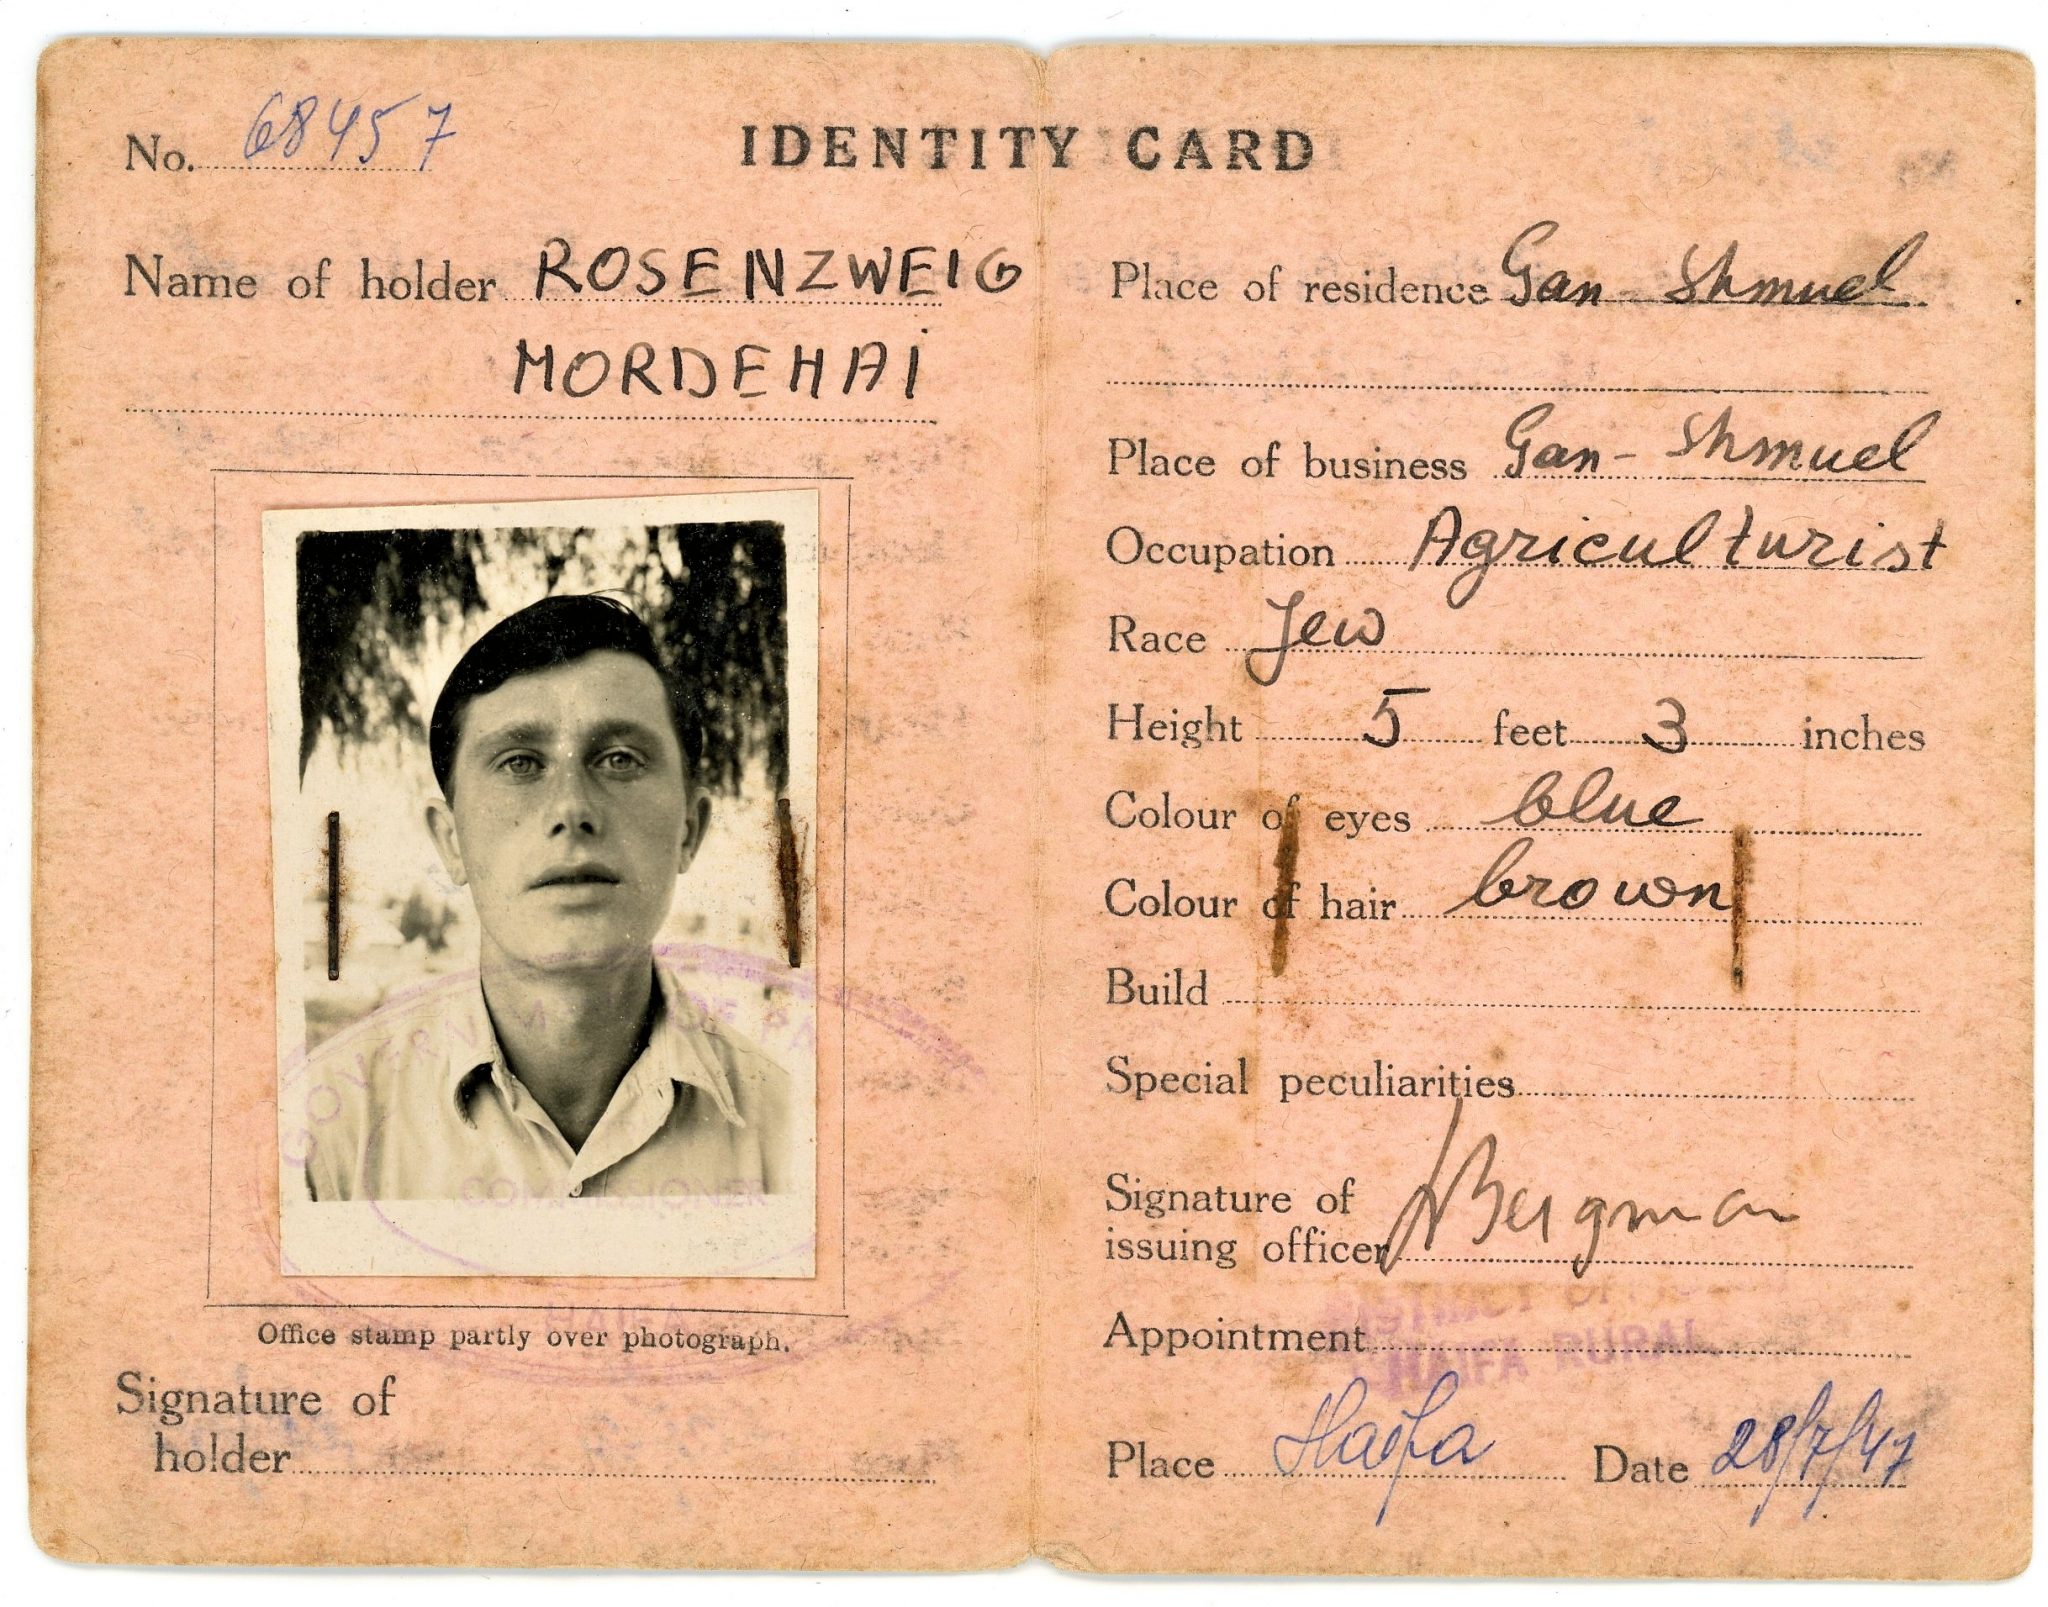 No. 68457
IDENTITY CARD
Name of holder ROSENZWEIG
MORDEHAI
GOVERNMENT OF PA
COMMISSIONER
HAIFA
Office stamp partly over photograph.
Signature of
holder
Place of residence Gan Shmuel
Place of business Gan-Shmuel
Occupation Agriculturist
Race Jew
Height 5 feet 3 inches
Colour of eyes blue
Colour of hair brown
Build
Special peculiarities
Signature of
issuing officer Bergman
DISTRICT OFFIC
Appointment
HAIFA RURAL
Place Haifa Date 28/7/47